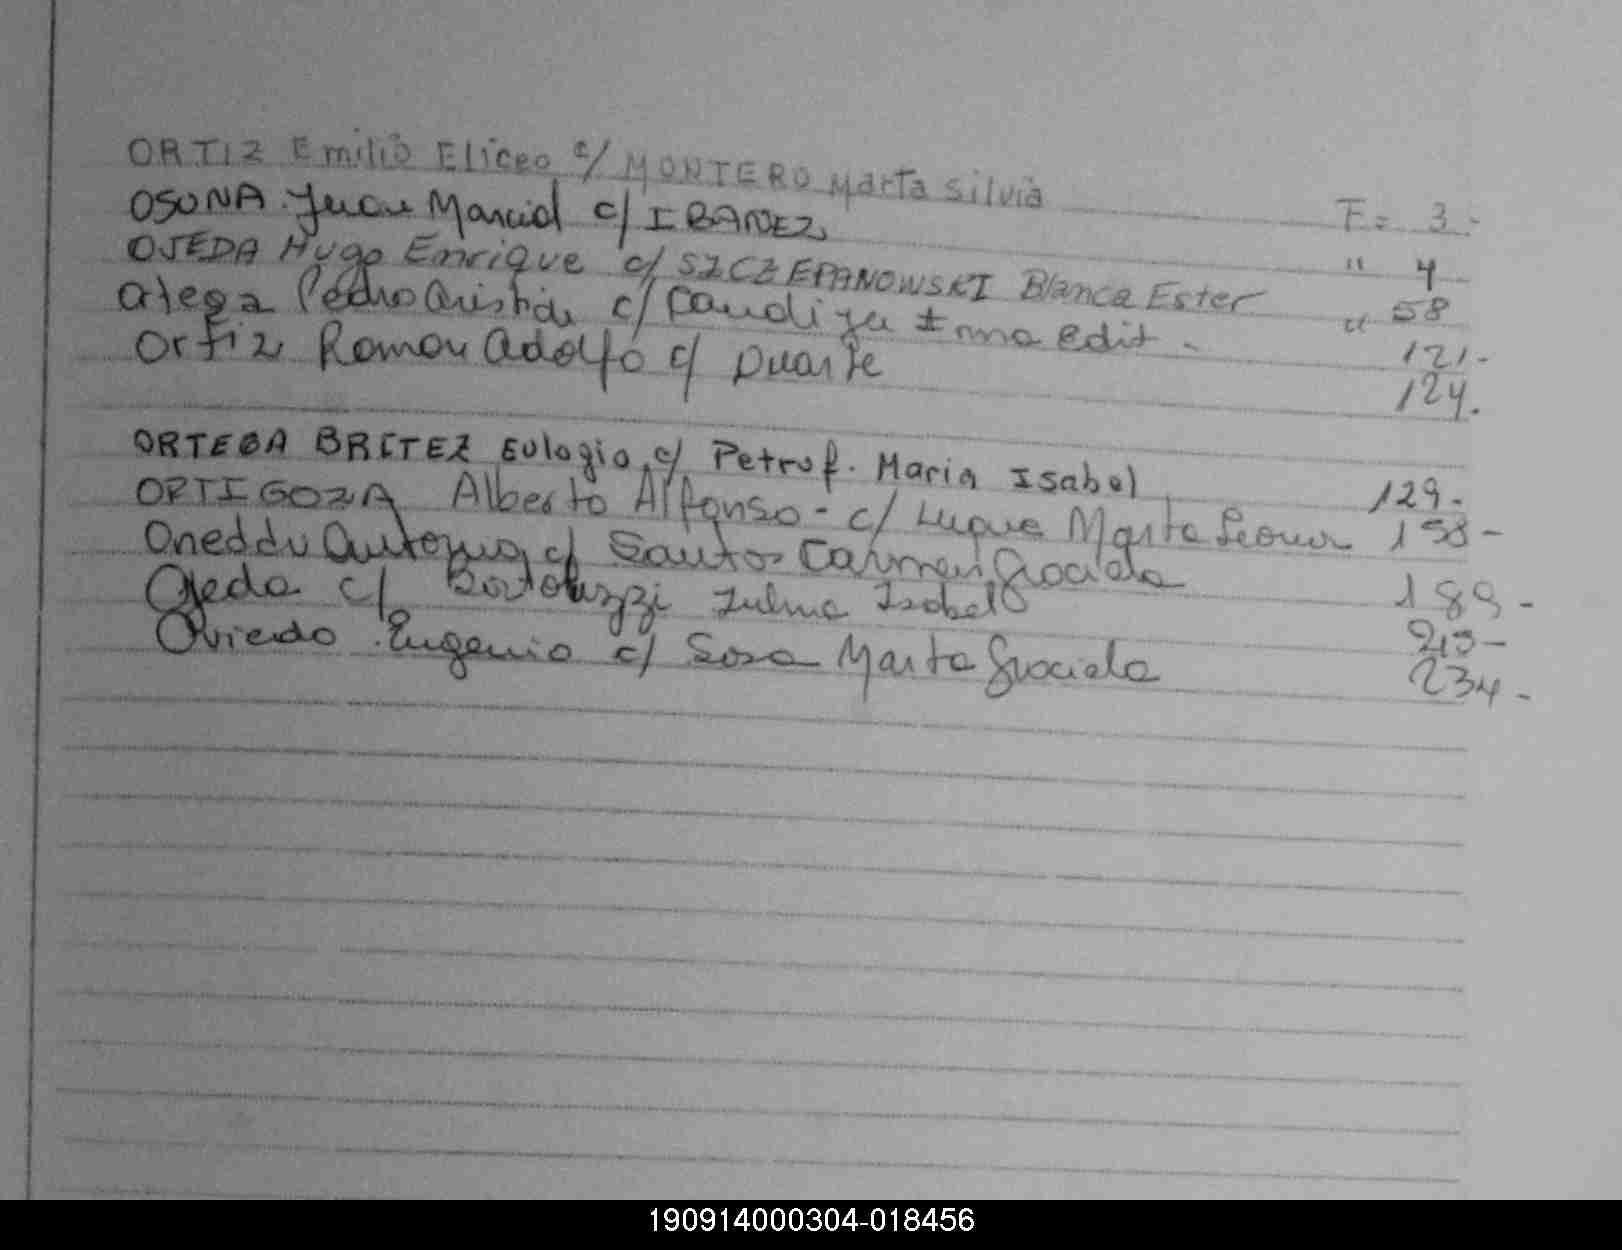 ORTIZ Emilio Eliceo c/ MONTERO Marta Silvia F= 3.-
OSUNA Juan Marcial c/ IBAÑEZ " 4
OJEDA Hugo Enrique c/ SZCZEPANOWSKI Blanca Ester " 58
Pedro c/ Irma Edit - 121.-
Ortiz Ramon Adolfo c/ Duarte 124.
ORTEGA BRITEZ Eulogio c/ Petruf. Maria Isabel 129.-
ORTIGOZA Alberto Alfonso - c/ Luque Marta Leonor 158-
Oneddu Antonio c/ Santos Carmen Graciela 189-
Ojeda c/ Bortoluzzi Zulma Isabel 213-
Oviedo Eugenio c/ Sosa Marta Graciela 234-
190914000304-018456